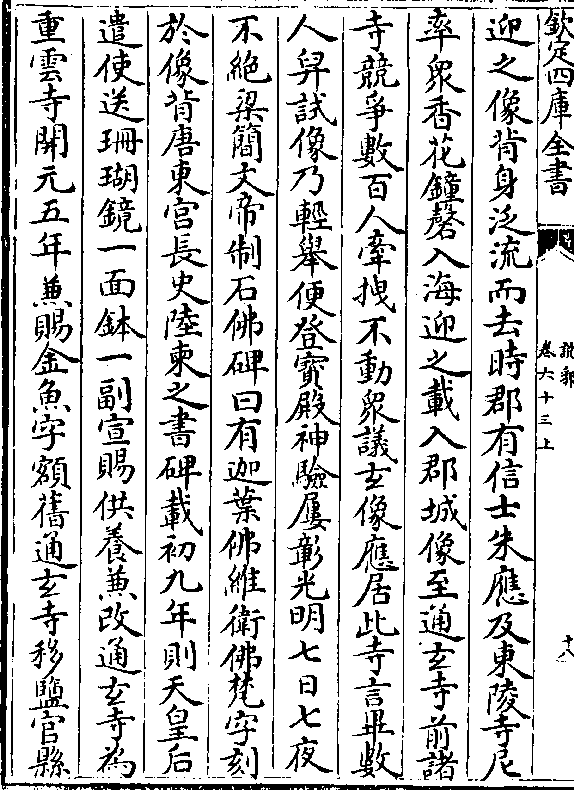 欽定四庫全書
說郛
卷六十三上
十八
迎之像背身泛流而去時郡有信士朱應及東陵寺尼
率衆香花鐘磬入海迎之載入郡城像至通玄寺前諸
寺競爭數百人牽拽不動衆議玄像應居此寺言畢數
人舁試像乃輕舉便登寳殿神驗屢彰光明七日七夜
不絶梁簡文帝制石佛碑曰有迦葉佛維衛佛梵字刻
於像背唐東宫長史陸柬之書碑載初九年則天皇后
遣使送珊瑚鏡一面鉢一副宣賜供養兼改通玄寺為
重雲寺開元五年兼賜金魚字額舊通玄寺移鹽官縣